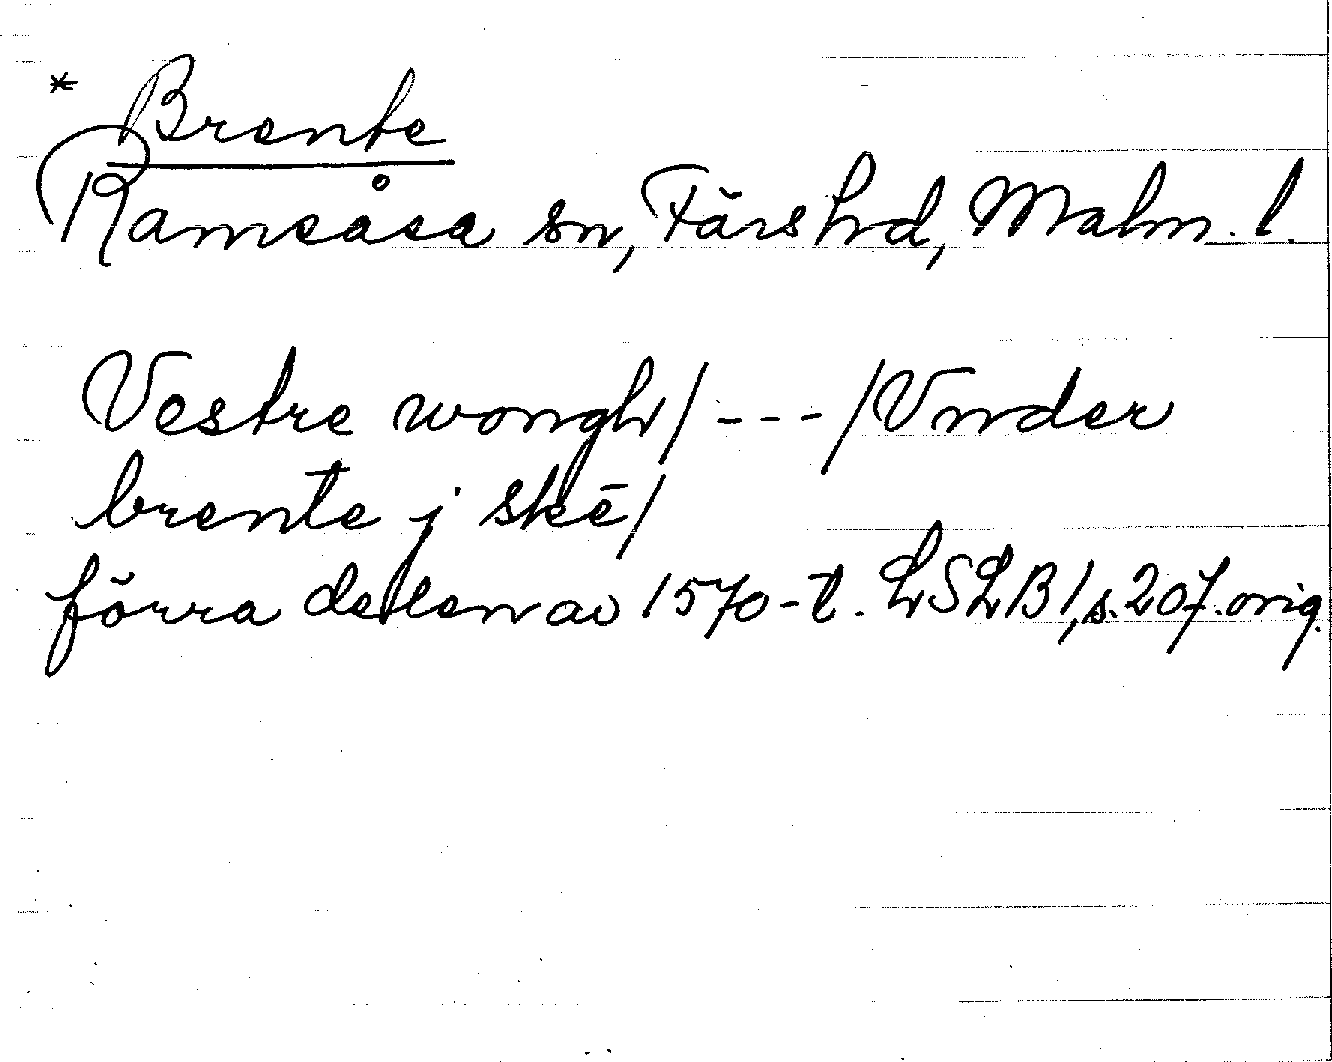 * Brente
Ramsåsa sn, Färs hd, Malm. l.
Vestre wongh/ --- /Vnder
brente j skē/
förra delen av 1570-t. LSLB 1, s. 207. orig.